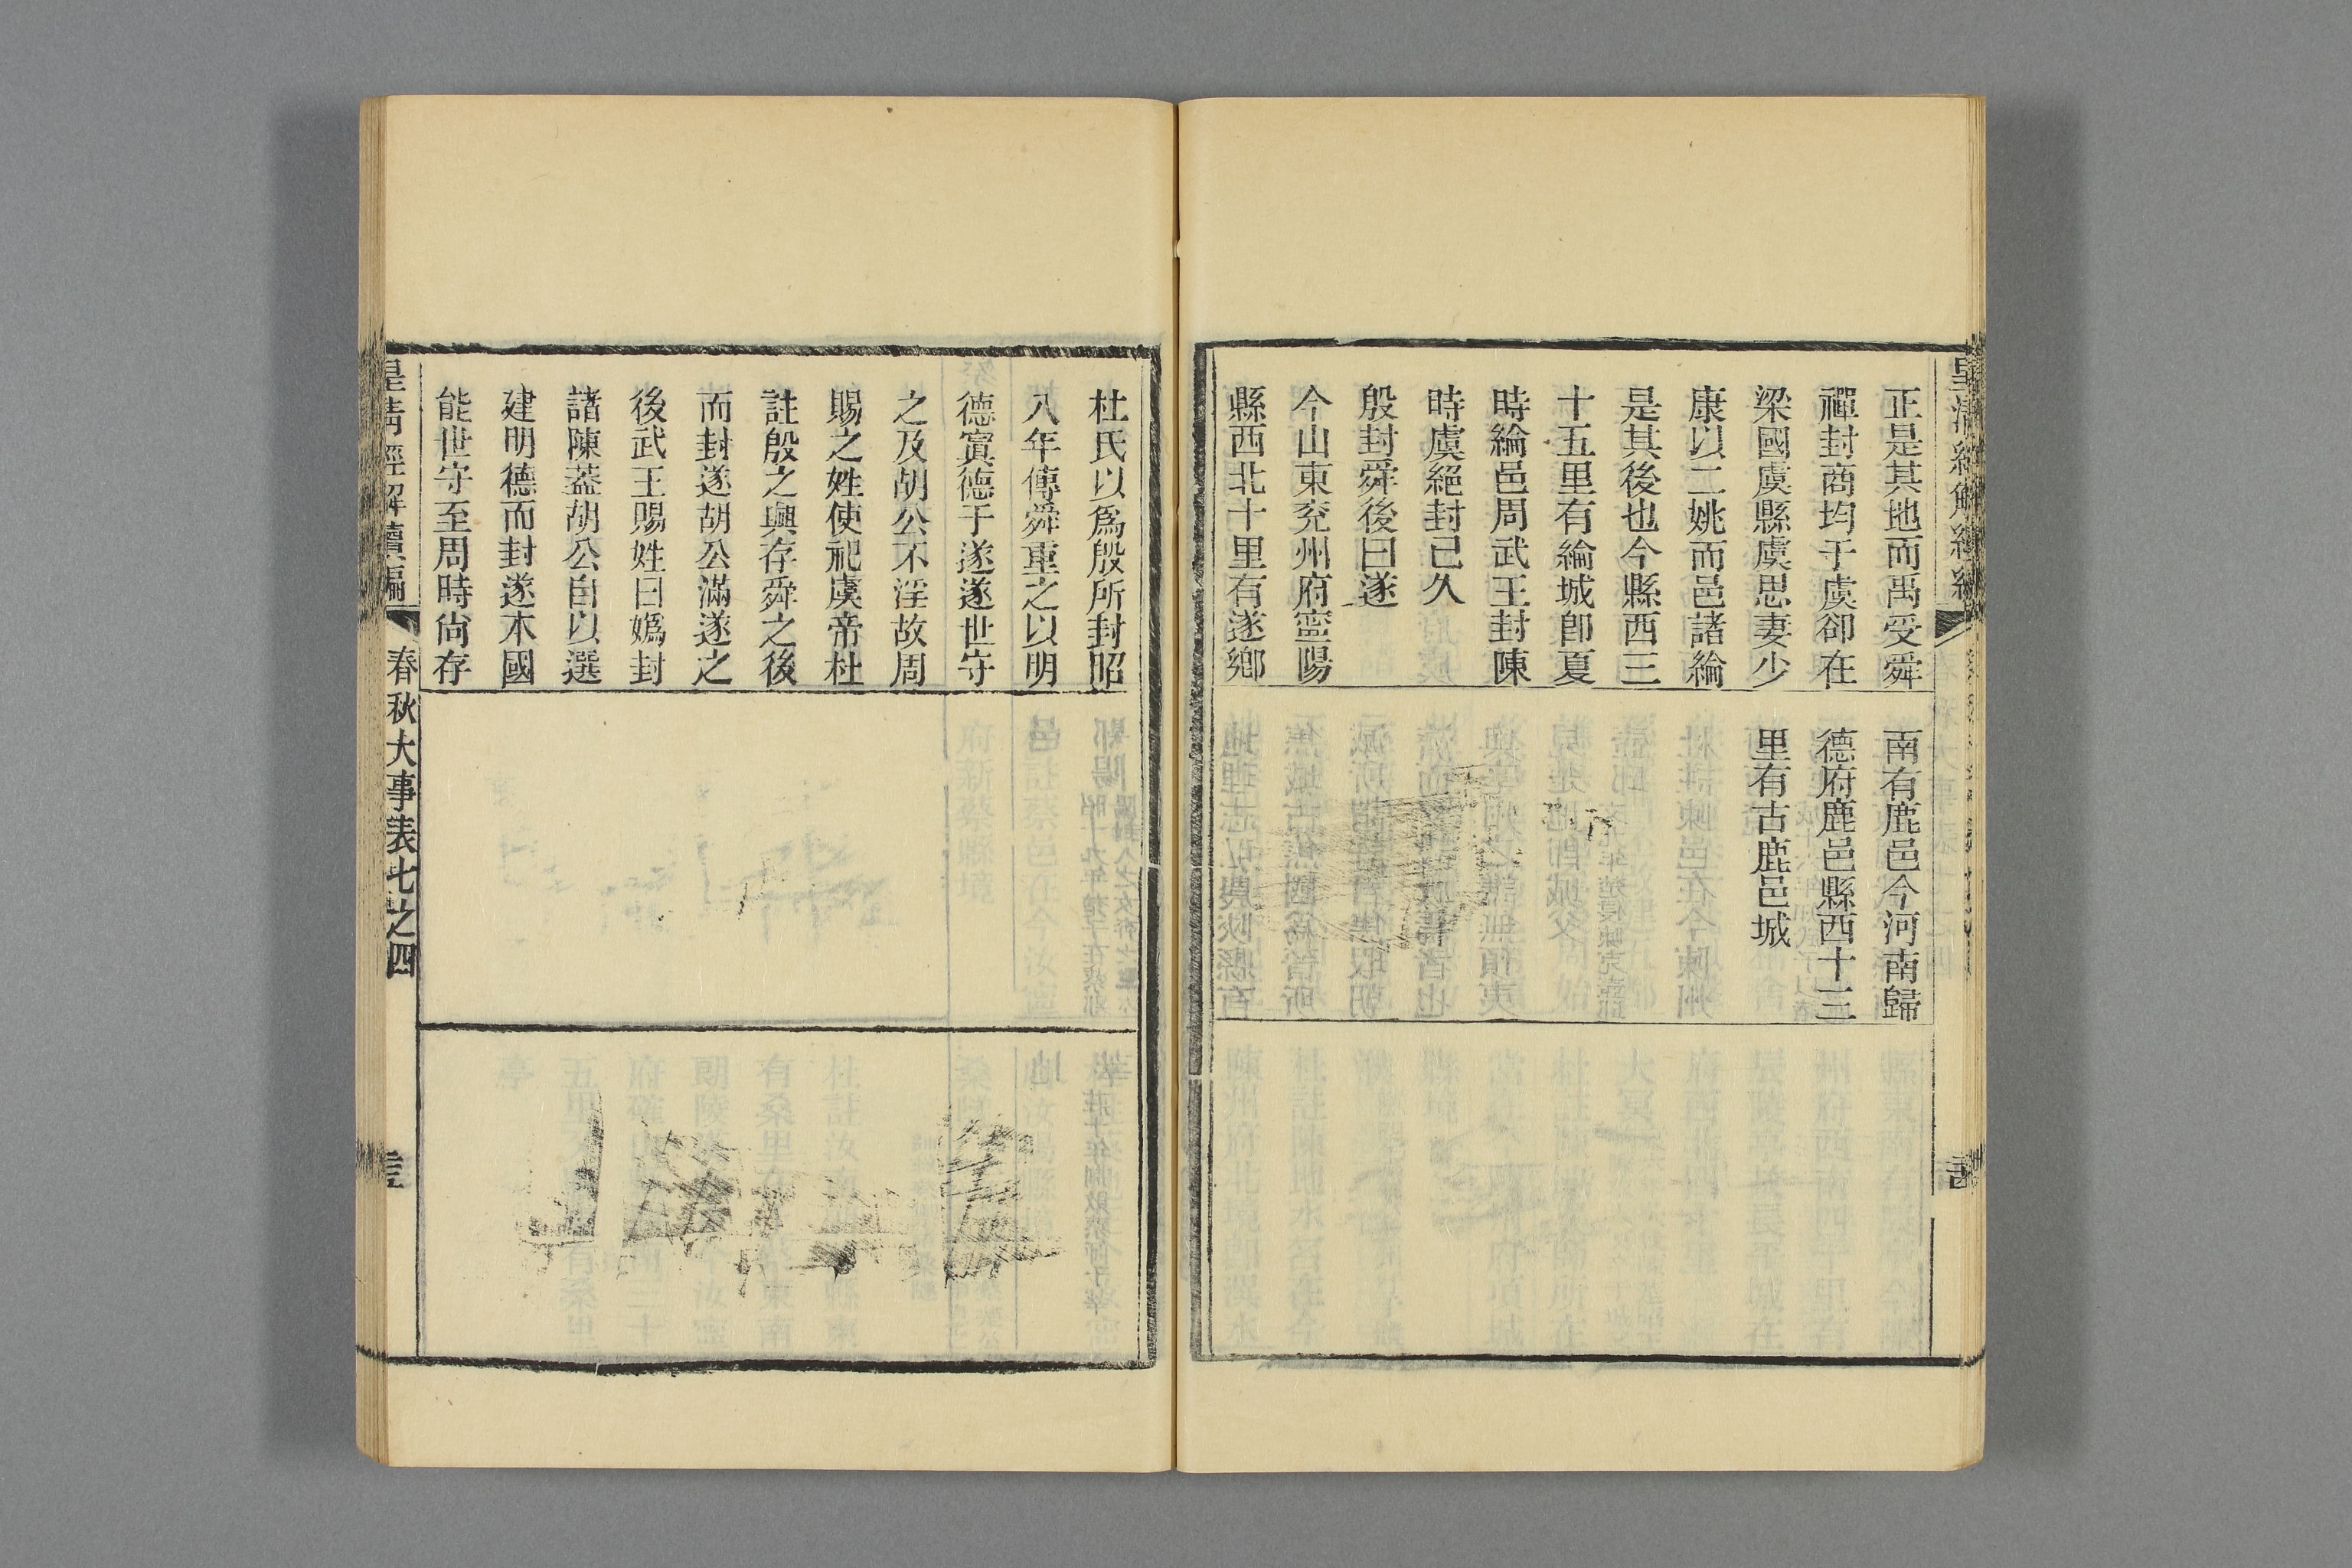 正是其地而禹受舜
禪封商均于虞卻在
梁國虞縣虞思妻少
康以二姚而邑諸綸
是其後也今縣西三
十五里有綸城卽夏
時綸邑周武王封陳
時虞絕封已久
殷封舜後曰遂
今山東兖州府寧陽
縣西北十里有遂鄉
南有鹿邑今河南歸
德府鹿邑縣西十三
里有古鹿邑城
杜氏以爲殷所封昭
八年傳舜重之以明
德寘德于遂遂世守
之及胡公不淫故周
賜之姓使祀虞帝杜
註殷之興存舜之後
而封遂胡公滿遂之
後武王賜姓曰媯封
諸陳葢胡公自以選
建明德而封遂本國
能世守至周時尙存
皇清經解續編
春秋大事表七之四